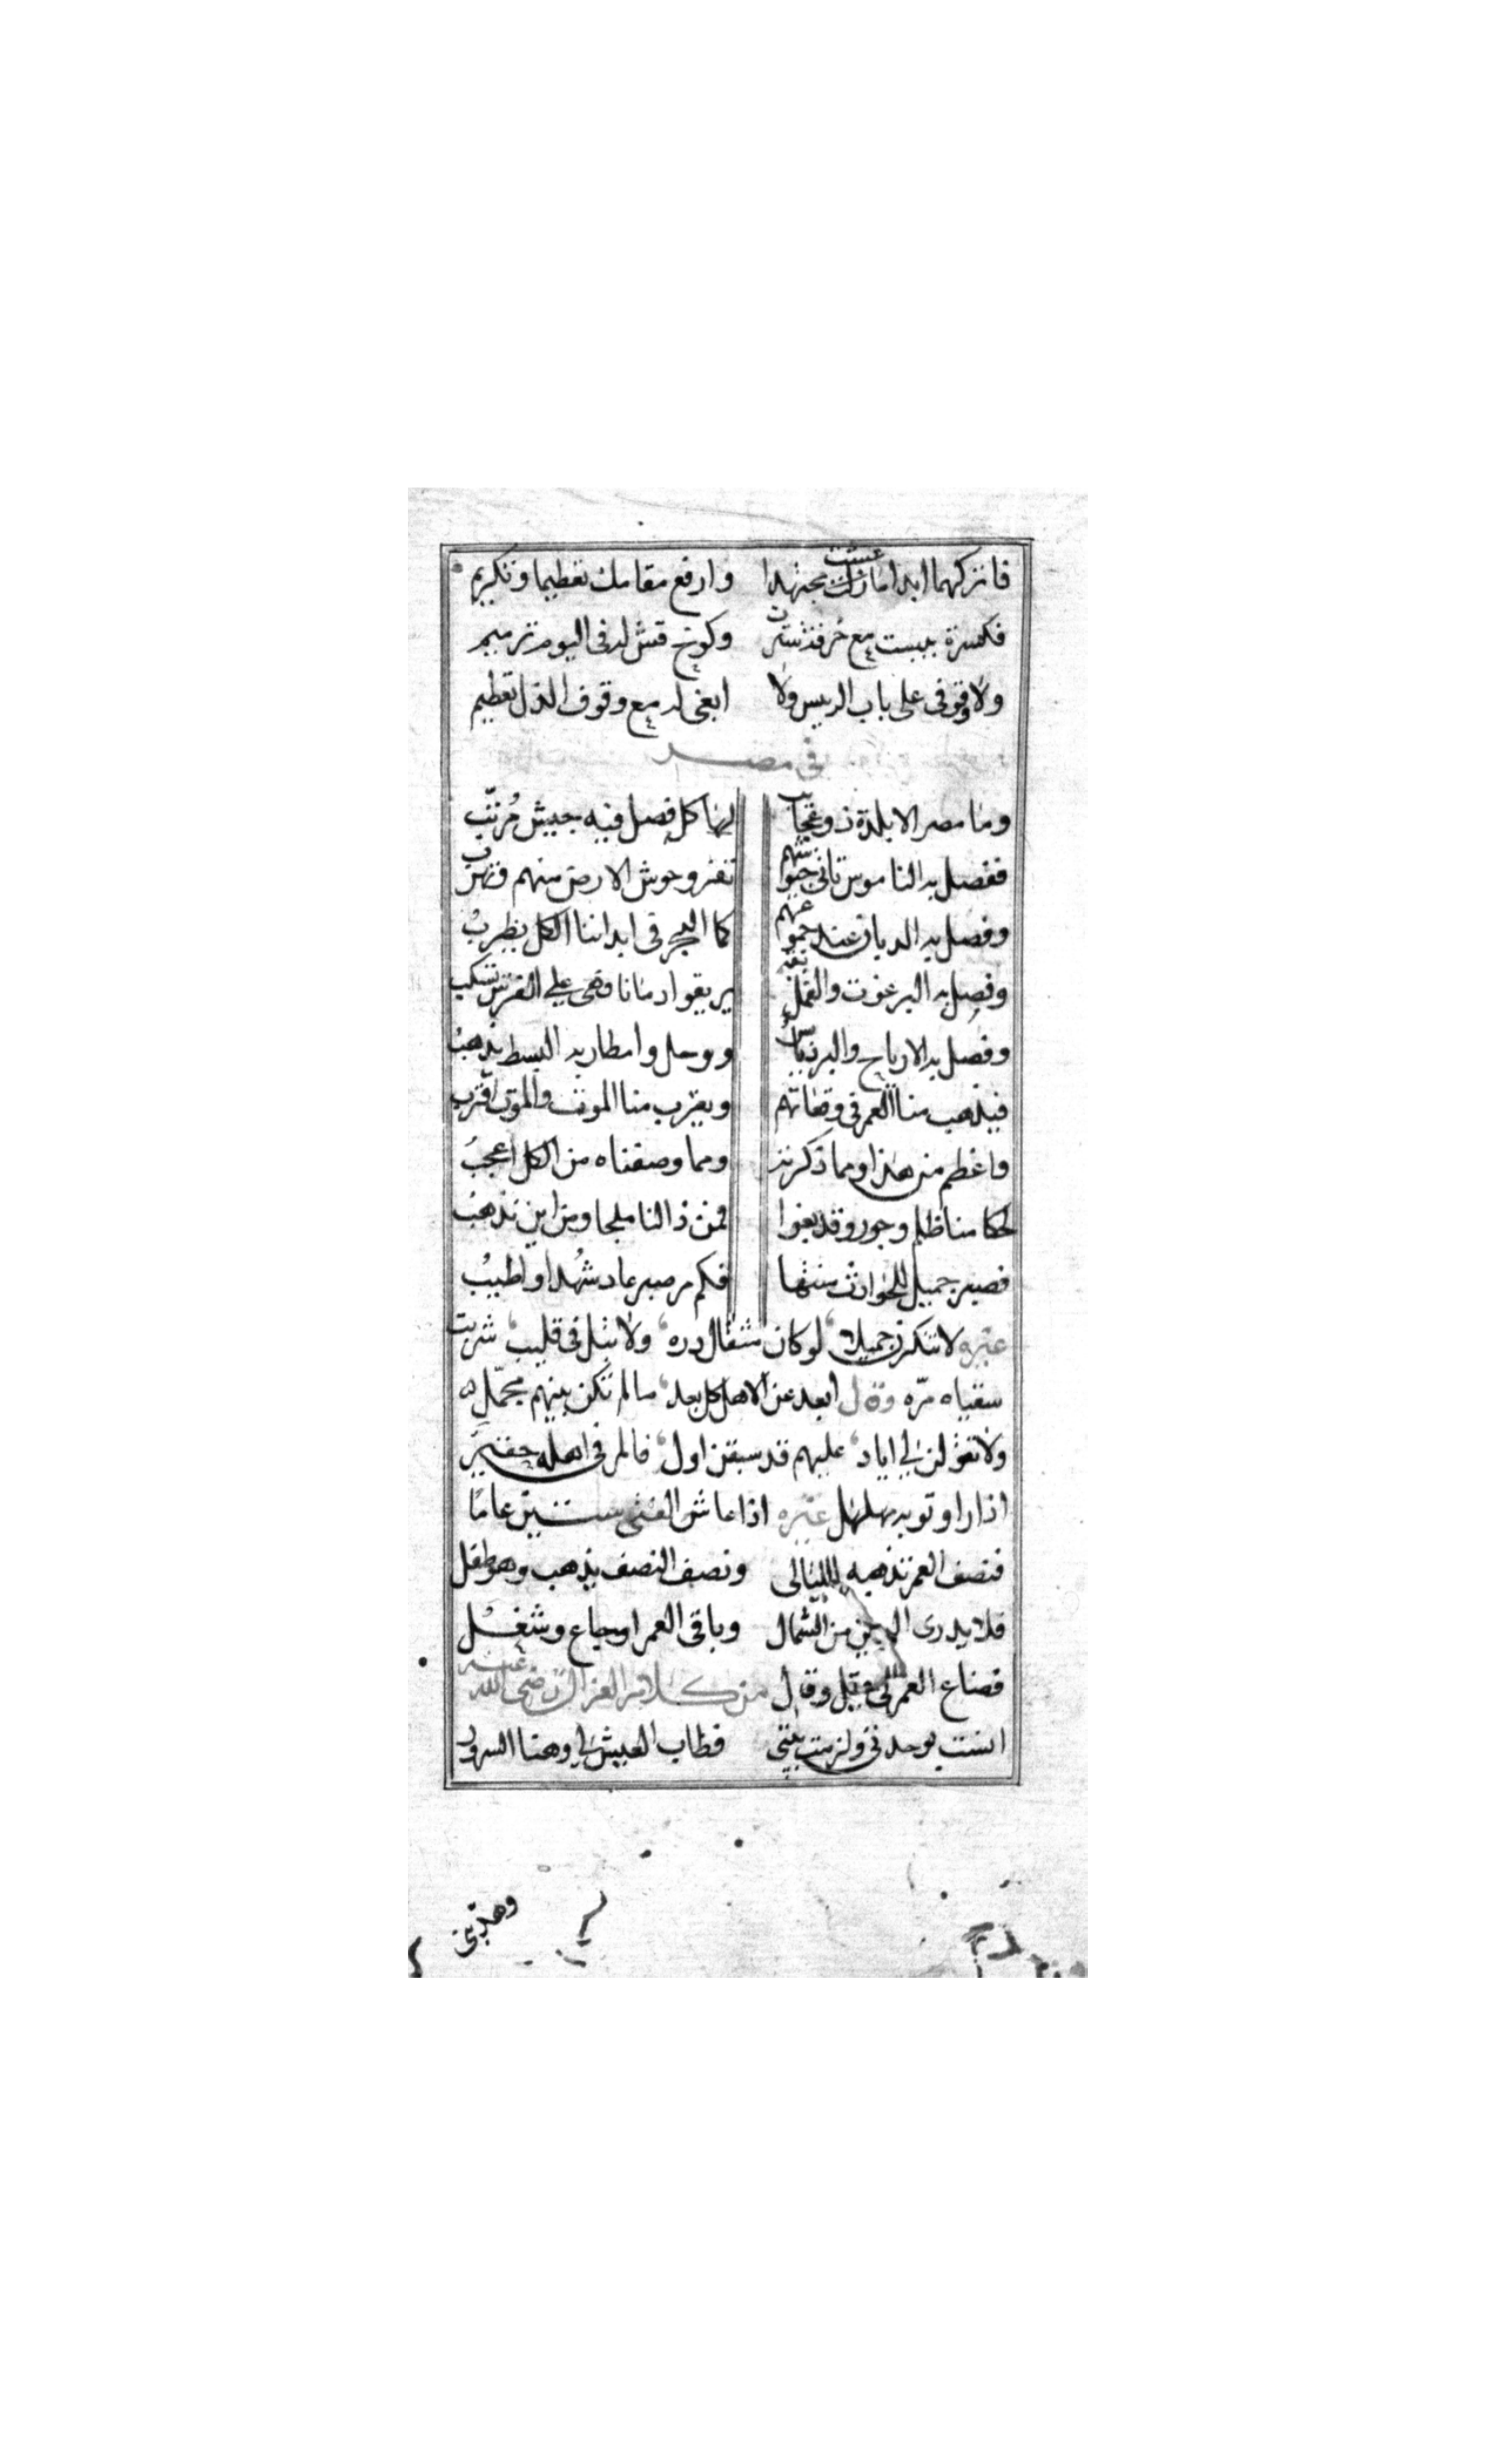 فاتركهما ابدا ما عشت مجتهدا وارفع مقامك تعظيما وتكريم
فكسرة يبست مع خرقة سترت وكوخ قش له في اليوم ترميم
ولا وقوفى على باب الرييس ولا ابغى له مع وقوف الذل تعظيم
في مصر
وما مصر الا بلدة ذو عجايب لها كل فصل فيه جيش مرتب
ففصل به الناموس تاتى جيوشهم تفر وحوش الارض منهم وتهرب
وفصل به الدبان عند جموعهم كما البحر فى ابداننا الكل يظرب
وفصل به البرغوت والقمل بقه يريقوا دمانا وهى على الفرش تسكب
وفصل به الارياح والبرد يابس ووحل وامطار به البسط يذهب
فيذهب منا العمر فى وقعاتهم ويقرب منا الموت والموت اقرب
واعظم من هذا ومما ذكرته ومما وصفناه من الكل اعجب
لحكامنا ظلم وجور وقد بغوا فمن ذا لنا ملجا ومن اين نذهب
فصبر جميل للحوادث سنتها فكم مر صبر عاد شهدا واطيب
غيره لا تنكرن جميلا لوكان مثقال دره ولا تبل فى قليب شربت
سقياه مره وقال ابعد عن الاهل كل بعد ما لم تكن بينهم مجمل
ولا تقولن لي اياد عليهم قد سبقن اول فالمر فى اهله حقير
اذا راو ثوبه مهلهل غيره اذا عاش الفتى ستين عاما
فنصف العمر تذهبه الليالى ونصف النصف يذهب وهو طفل
فلا يدرى اليمين من الشمال وباقى العمر اوجاع وشغل
فضاع العمر فى وقال من كلام الغزالى رضى الله عنه
انست بوحدتى ولزمت بيتى فطاب العيش لي وهنا السرور
وهذبنى